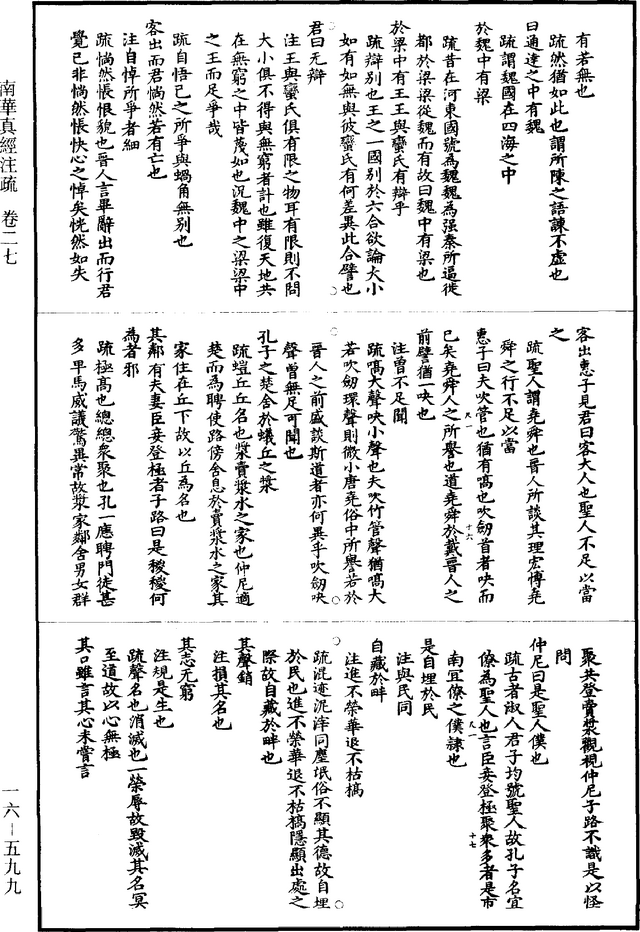 南華真經注疏　卷二七
有若無也
疏然猶如此也謂所陳之語諫不虛也
曰通達之中有魏
疏謂魏國在四海之中
於魏中有梁
疏昔在河東國號為魏魏為强秦所逼徙
都於梁梁從魏而有故曰魏中有梁也
於梁中有王王與蠻氏有辯乎
疏辯別也王之一國別於六合欲論大小
如有如無與彼蠻氏有何差異此合譬也
君曰无辯
注王與蠻氏俱有限之物耳有限則不問
大小俱不得與無窮者計也雖復天地共
在無窮之中皆蔑如也況魏中之梁梁中
之王而足爭哉
疏自悟己之所爭與蝸角無別也
客出而君惝然若有亡也
注自悼所爭者細
疏惝然悵恨貌也晉人言畢辭出而行君
覺己非惝然悵怏心之悼矣恍然如失
客出惠子見君曰客大人也聖人不足以當
之
疏聖人謂堯舜也晉人所談其理宏博堯
舜之行不足以當
惠子曰夫吹管也猶有嗃也吹劒首者吷而
已矣堯舜人之所譽也道堯舜於戴晉人之
前譬猶一吷也
注曾不足聞
疏嗃大聲吷小聲也夫吹竹管聲猶嗃大
若吹劒環聲則微小唐堯俗中所譽若於
晉人之前盛談斯道者亦何異乎吹劒吷
聲曾無足可聞也
孔子之楚舍於蟻丘之漿
疏螘丘丘名也漿賣漿水之家也仲尼適
楚而為聘使路傍舍息於賣漿水之家其
家住在丘下故以丘為名也
其鄰有夫妻臣妾登極者子路曰是稯稯何
為者邪
疏極高也總總衆聚也孔一應聘門徒甚
多車馬威議驚異常故漿家鄰舍男女群
聚共登賣漿觀視仲尼子路不識是以怪
問
仲尼曰是聖人僕也
疏古者淑人君子均號聖人故孔子名宜
僚為聖人也言臣妾登極聚衆多者是市
南宜僚之僕隷也
是自埋於民
注與民同
自藏於畔
注進不榮華退不枯槁
疏混迹泥滓同塵氓俗不顯其德故自埋
於民也進不榮華退不枯槁隱顯出處之
際故自藏於畔也
其聲銷
注損其名也
其志无窮
注規是生也
疏聲名也消滅也一榮辱故毀滅其名冥
至道故以心無極
其口雖言其心未嘗言
一六－五九九